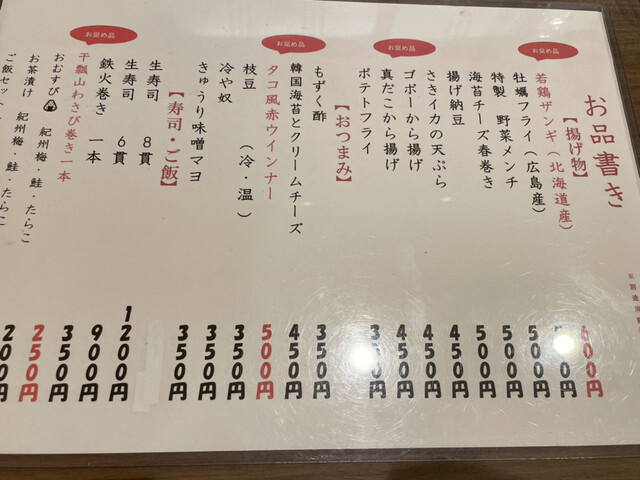 お品書き
【揚げ物】
お奨め品
若鶏ザンギ（北海道産） 600円
牡蠣フライ（広島産） 円
特製 野菜メンチ 500円
海苔チーズ春巻き 500円
揚げ納豆 500円
さきイカの天ぷら 450円
ゴボーから揚げ 450円
お奨め品
真だこから揚げ 450円
ポテトフライ 350円
【おつまみ】
もずく酢 350円
韓国海苔とクリームチーズ 450円
お奨め品
タコ風赤ウインナー 500円
枝豆 （冷・温） 350円
冷や奴 350円
きゅうり味噌マヨ 350円
【寿司・ご飯】
生寿司 8貫 1200円
生寿司 6貫 900円
鉄火巻き 一本 350円
お奨め品
干瓢山わさび巻き一本 250円
おむすび 紀州梅・鮭・たらこ 200円
お茶漬け 紀州梅・鮭・たらこ
ご飯セット